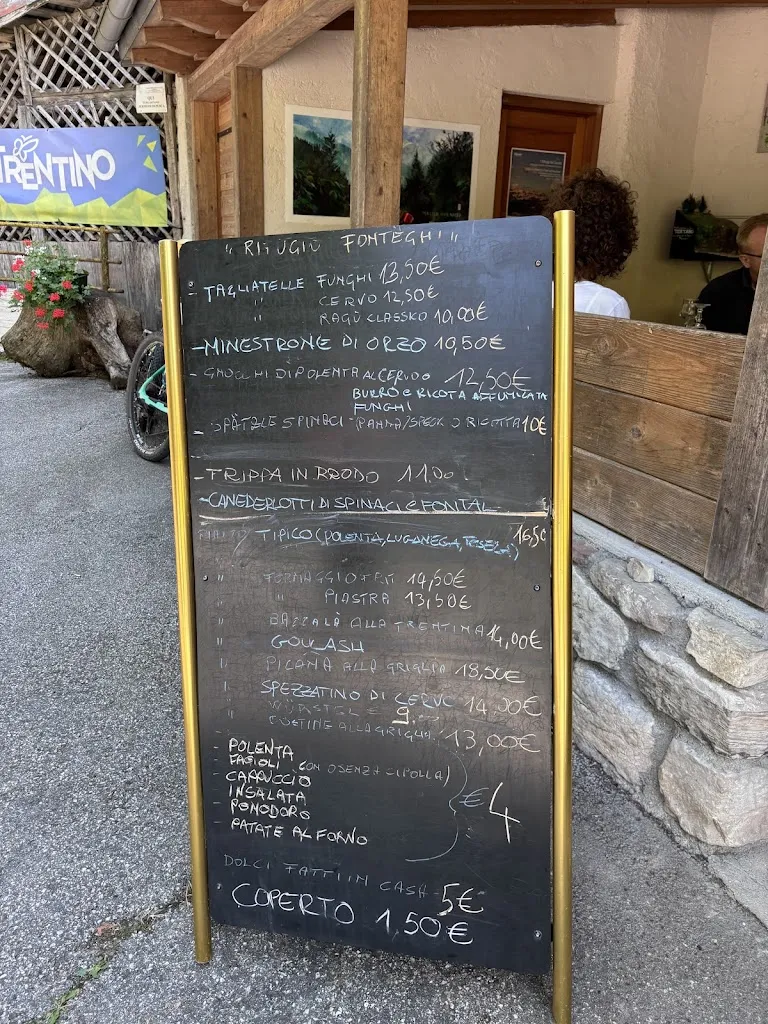 TRENTINO
"RIFUGIO FONTÈGHI"
- TAGLIATELLE FUNGHI 13,50€
" CERVO 12,50€
" RAGÙ CLASSKO 10,00€
- MINESTRONE DI ORZO 10,50€
- GNOCCHI DI POLENTA AL CERVO 12,50€
BURRO E RICOTA AFFUMICATA
FUNGHI
- SPÄTZLE SPINACI - (PANNA/SPECK O RICOTTA 10€
- TRIPPA IN BRODO 11,00
- CANEDERLOTTI DI SPINACI E FONTAL
PIATTO TIPICO (POLENTA, LUGANEGA, TOSELA) 16,50
" FORMAGGIO FUSO 14,50€
" " PIASTRA 13,50€
" BACCALÀ ALLA TRENTINA 14,00€
" GOULASH
" PICANA ALLA GRIGLIA 18,50€
" SPEZZATINO DI CERVO 14,00€
" WÜRSTEL 9.-
" COSTINE ALLA GRIGLIA 13,00€
- POLENTA
- FAGIOLI (CON O SENZA CIPOLLA)
- CAPPUCCIO
- INSALATA
- POMODORO
- PATATE AL FORNO
€ 4
DOLCI FATTI IN CASA 5€
COPERTO 1,50€